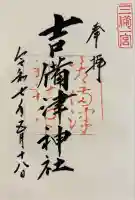 三備一宮
奉拝
吉備津神社
令和七年五月十八日